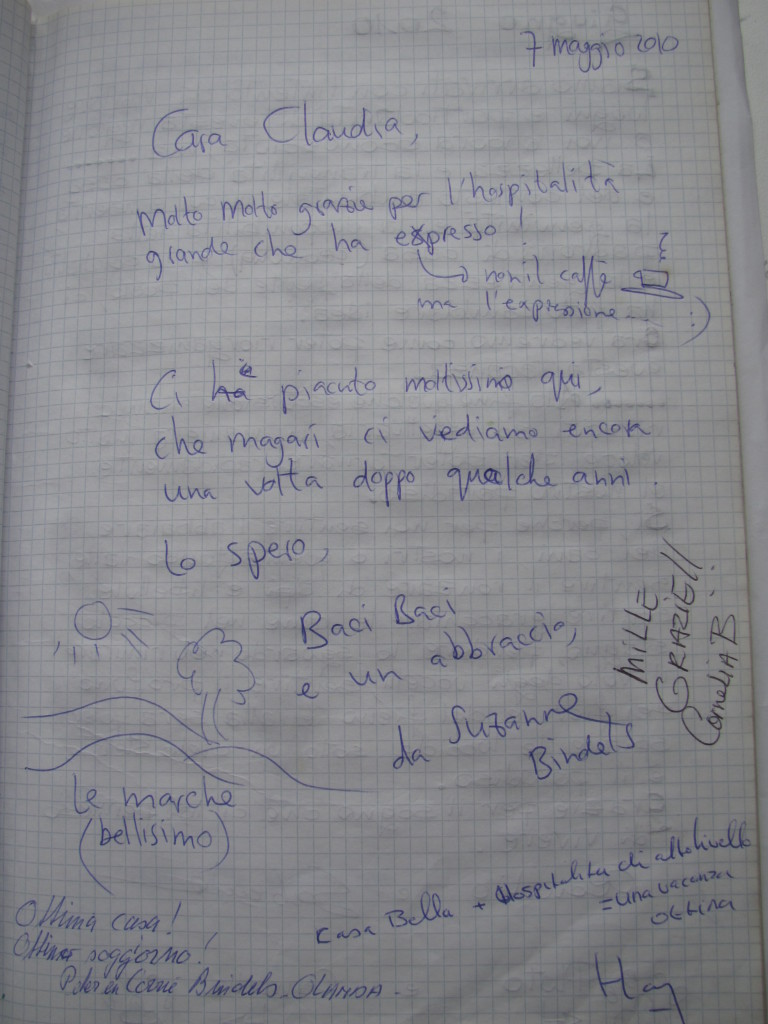 7 maggio 2010
Cara Claudia,
Molto molto grazie per l'hospitalità
grande che ha expresso!
non il caffè
ma l'expressione... :)
Ci è piaciuto moltissimo qui,
che magari ci vediamo encora
una volta doppo qualche anni.
Lo spero,
Baci Baci
e un abbraccio,
da Suzanne
Bindels
MILLE
GRAZIE!!
Cornelia B.
Le marche
(bellisimo)
Ottima casa!
Ottimo soggiorno!
Peter en Corrie Bindels - OLANDA.
Casa Bella + Hospitalita di alto livello
= una vacanza
ottina